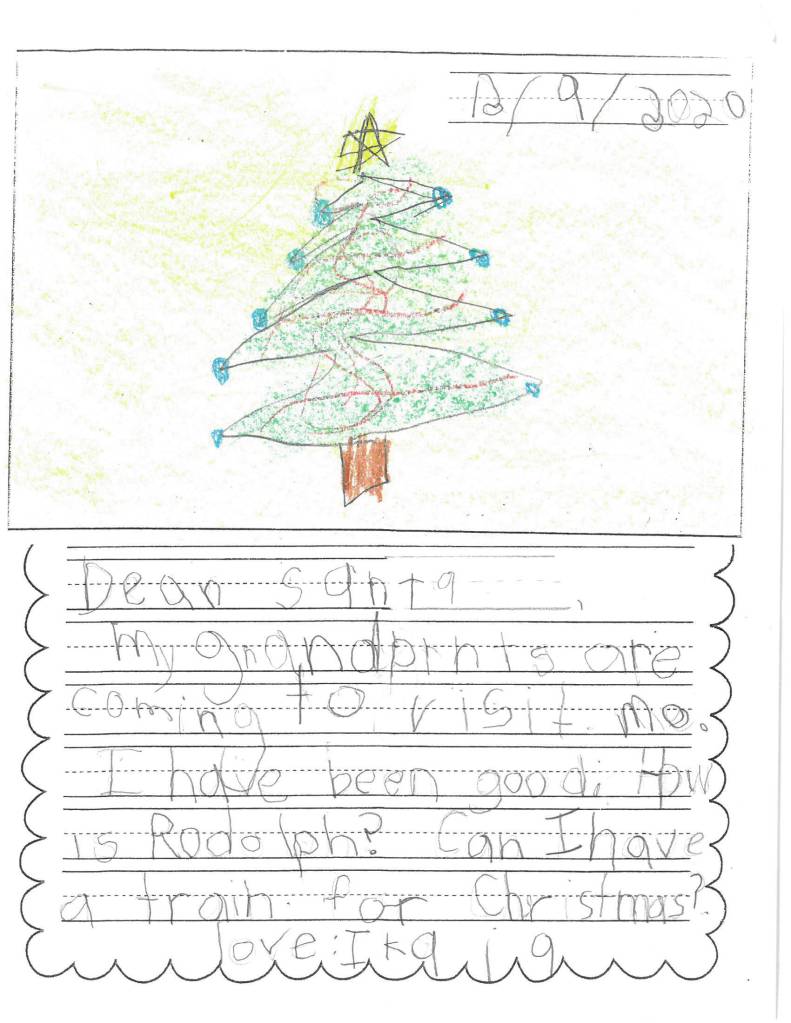 12/9/2020
Dear Santa,
My grandprnts are
coming to visit me.
I have been good. How
is Rodolph? Can I have
a train for Christmas?
love: Ikajq